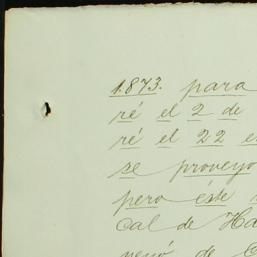 1.873. para
ré el 2 de
ré el 22 e
se proveyo
pero éste
cal de Ha
de